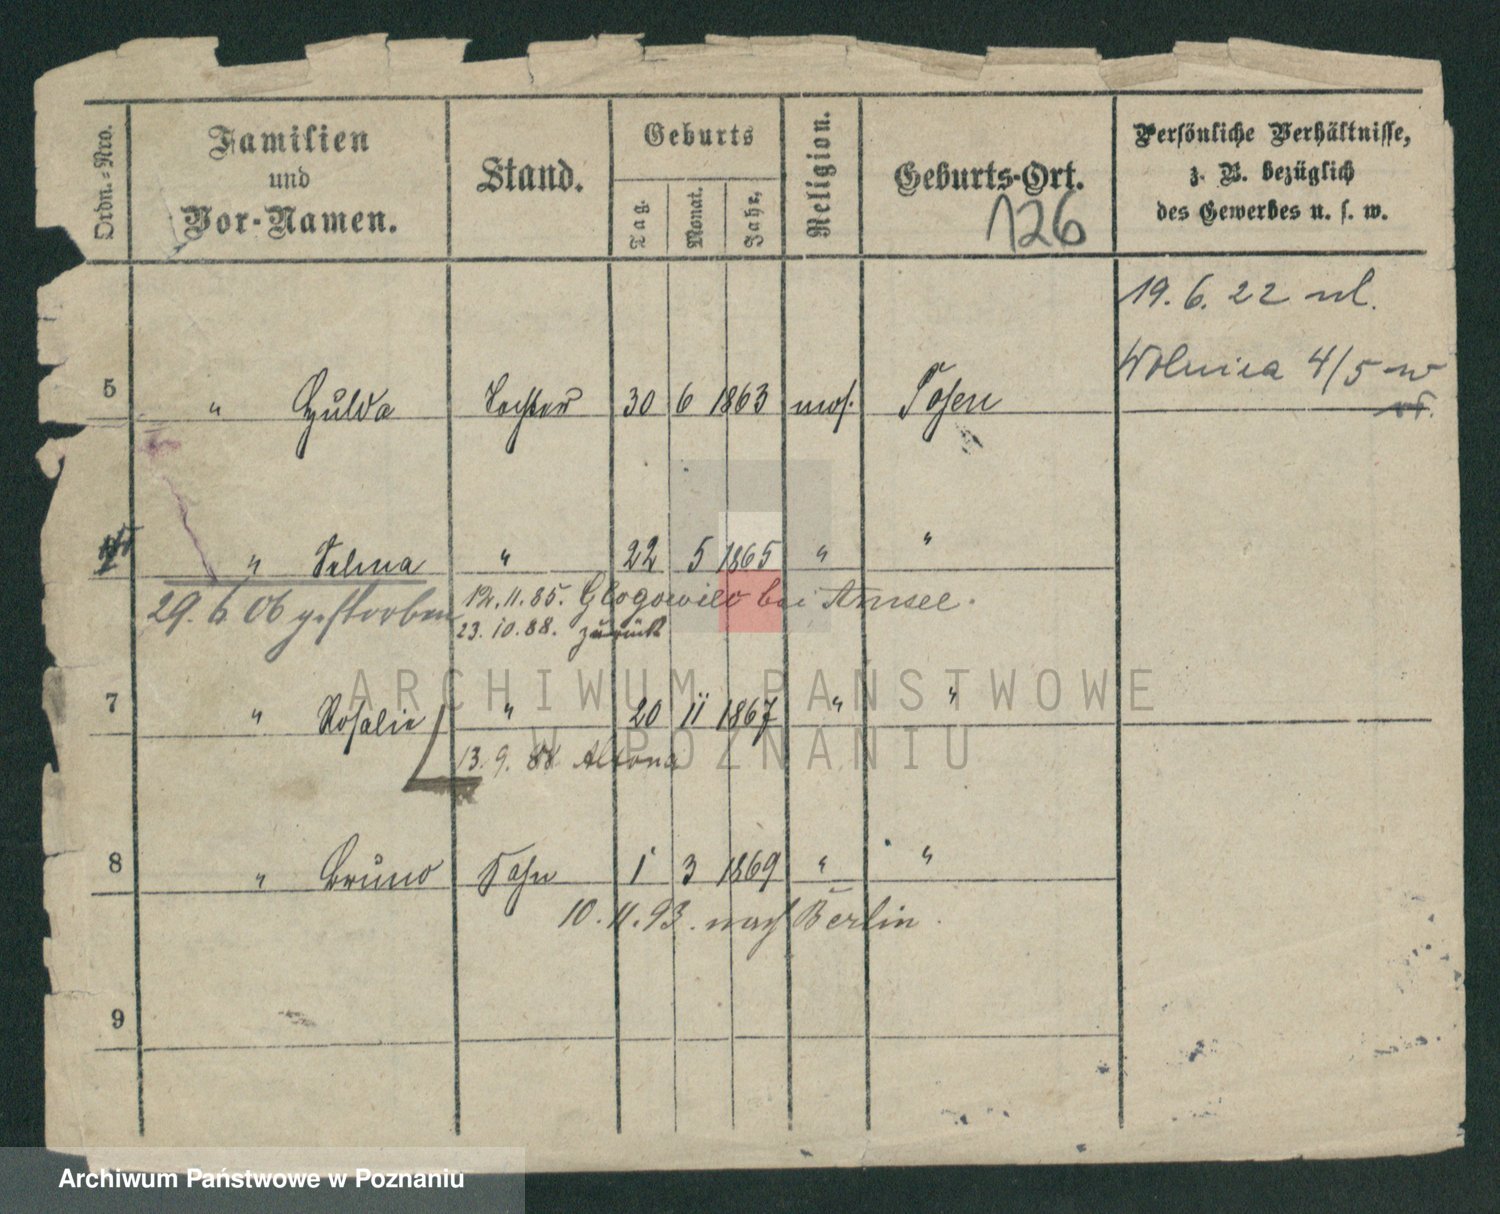 Ordn.-Nro.
Familien
und
Vor-Namen.
Stand.
Geburts
Tag.
Monat.
Jahr.
Religion.
Geburts-Ort.
126
Persönliche Verhältnisse,
z. B. bezüglich
des Gewerbes u. s. w.
19. 6. 22 ul.
Wolnica 4/5 w
5 " Hulda Tochter 30 6 1863 mos. Posen
" Selma " 22 5 1865 " "
29. 6. 06 gestorben
12. 11. 85. Glogowiec bei Amsee.
23. 10. 88. zurück
7 " Rosalie " 20 11 1867 " "
13. 9. 88 Altona
8 " Bruno Sohn 1 3 1869 " "
10. 11. 93. nach Berlin.
9
ARCHIWUM PAŃSTWOWE
W POZNANIU
Archiwum Państwowe w Poznaniu